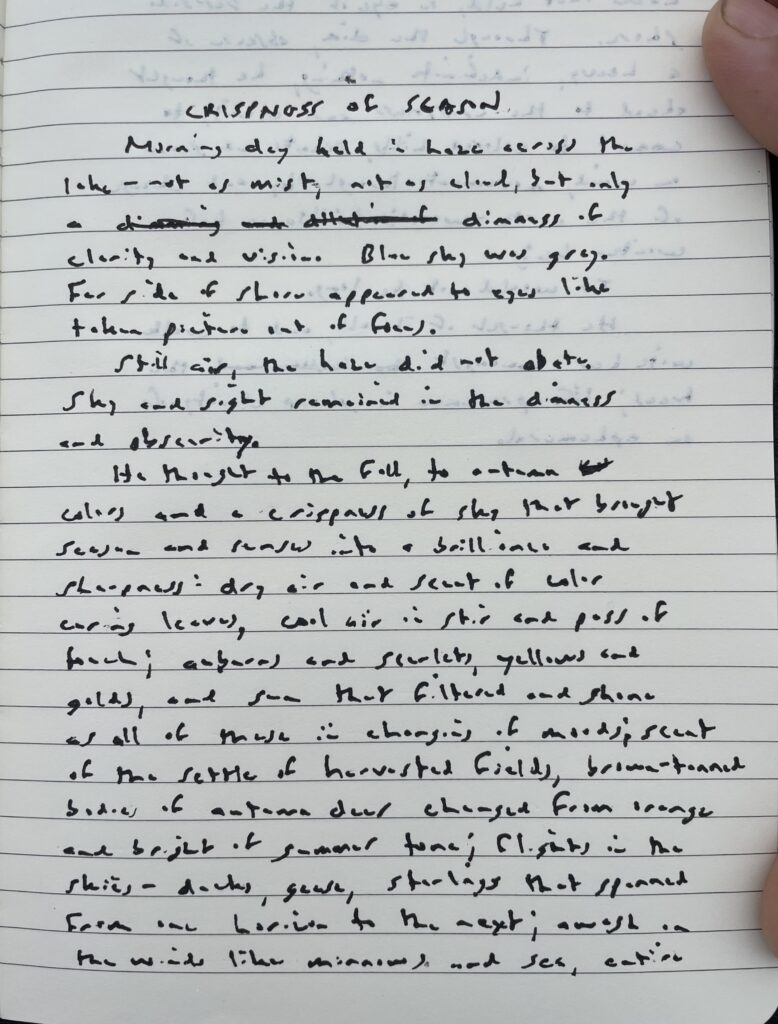 CRISPNESS OF SEASON.
Morning day held in haze across the
lake – not as mist, not as cloud, but only
a dimming and dilution of dimness of
clarity and vision. Blue sky was grey.
Far side of shore appeared to eyes like
taken picture out of focus.
Still air, the haze did not abate.
Sky and sight remained in the dimness
and obscurity.
He thought to the fall, to autumn
colors and a crispness of sky that brought
season and senses into a brilliance and
sharpness: dry air and scent of color
curing leaves, cool air in stir and pass of
touch; auburns and scarlets, yellows and
golds, and sun that filtered and shone
as all of these in changing of moods; scent
of the settle of harvested fields, brown-tanned
bodies of autumn deer changed from orange
and bright of summer tone; flights in the
skies – ducks, geese, starlings that spanned
from one horizon to the next; awash in
the winds like minnows and sea, entire